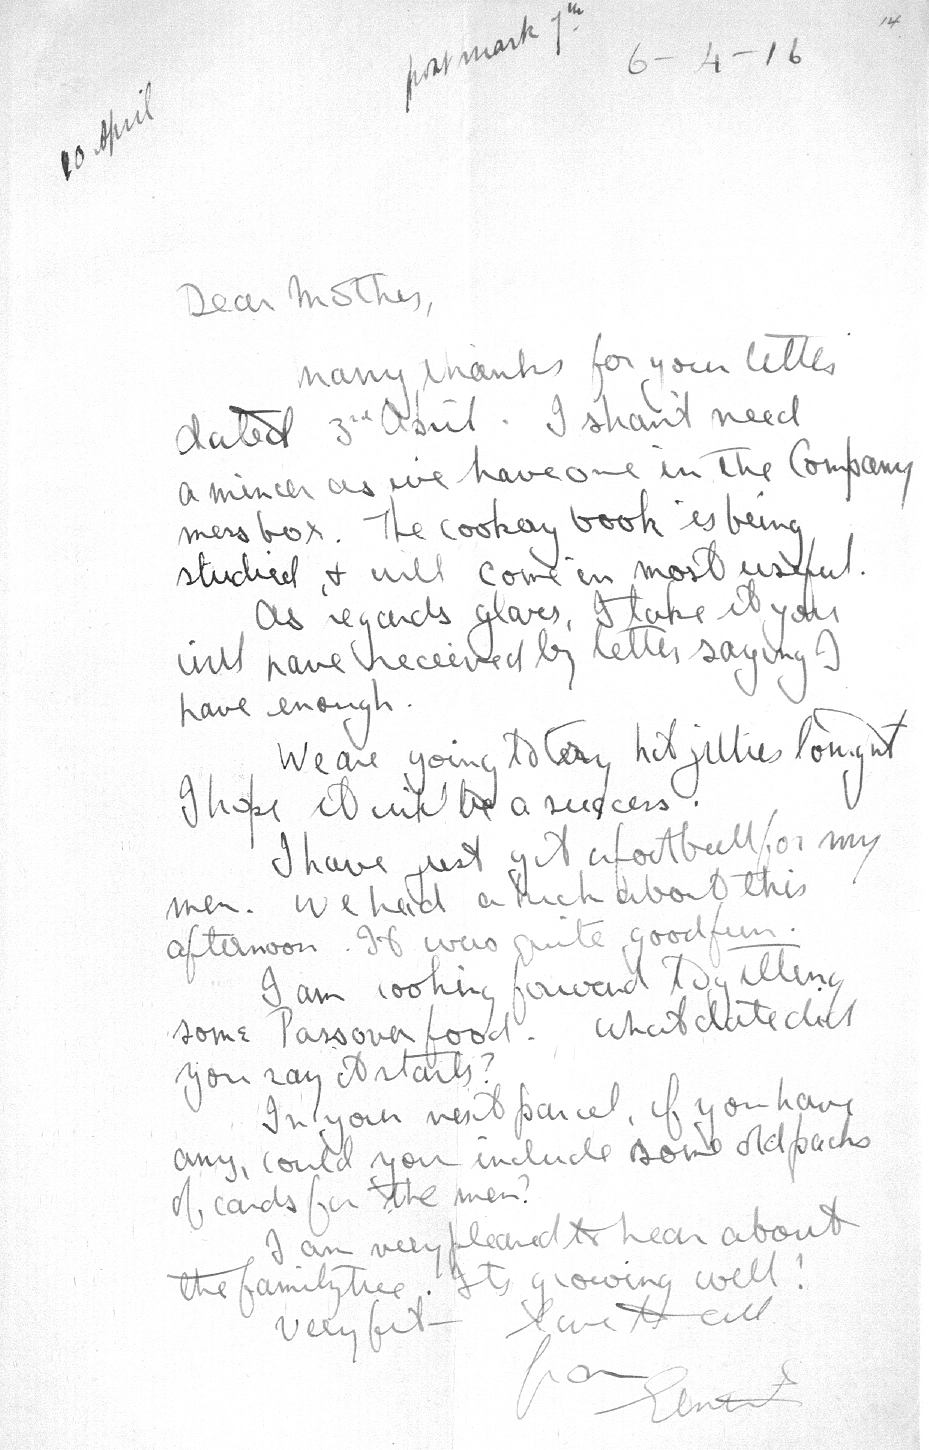 14
post mark 7th
6-4-16
10 April
Dear Mother,
Many thanks for your letter
dated 3rd April. I shan't need
a mincer as we have one in the Company
mess box. The cookery book is being
studied, & will come in most useful.
As regards gloves, I take it you
will have received by letter saying I
have enough.
We are going to try hot jellies tonight
I hope it will be a success.
I have just got a football for my
men. We had a kick about this
afternoon. It was quite good fun.
I am looking forward to getting
some Passover food. What date did
you say it starts?
In your next parcel, if you have
any, could you include some old packs
of cards for the men?
I am very pleased to hear about
the family tree. Its growing well!
Very fit - Love to all
from
Ernest